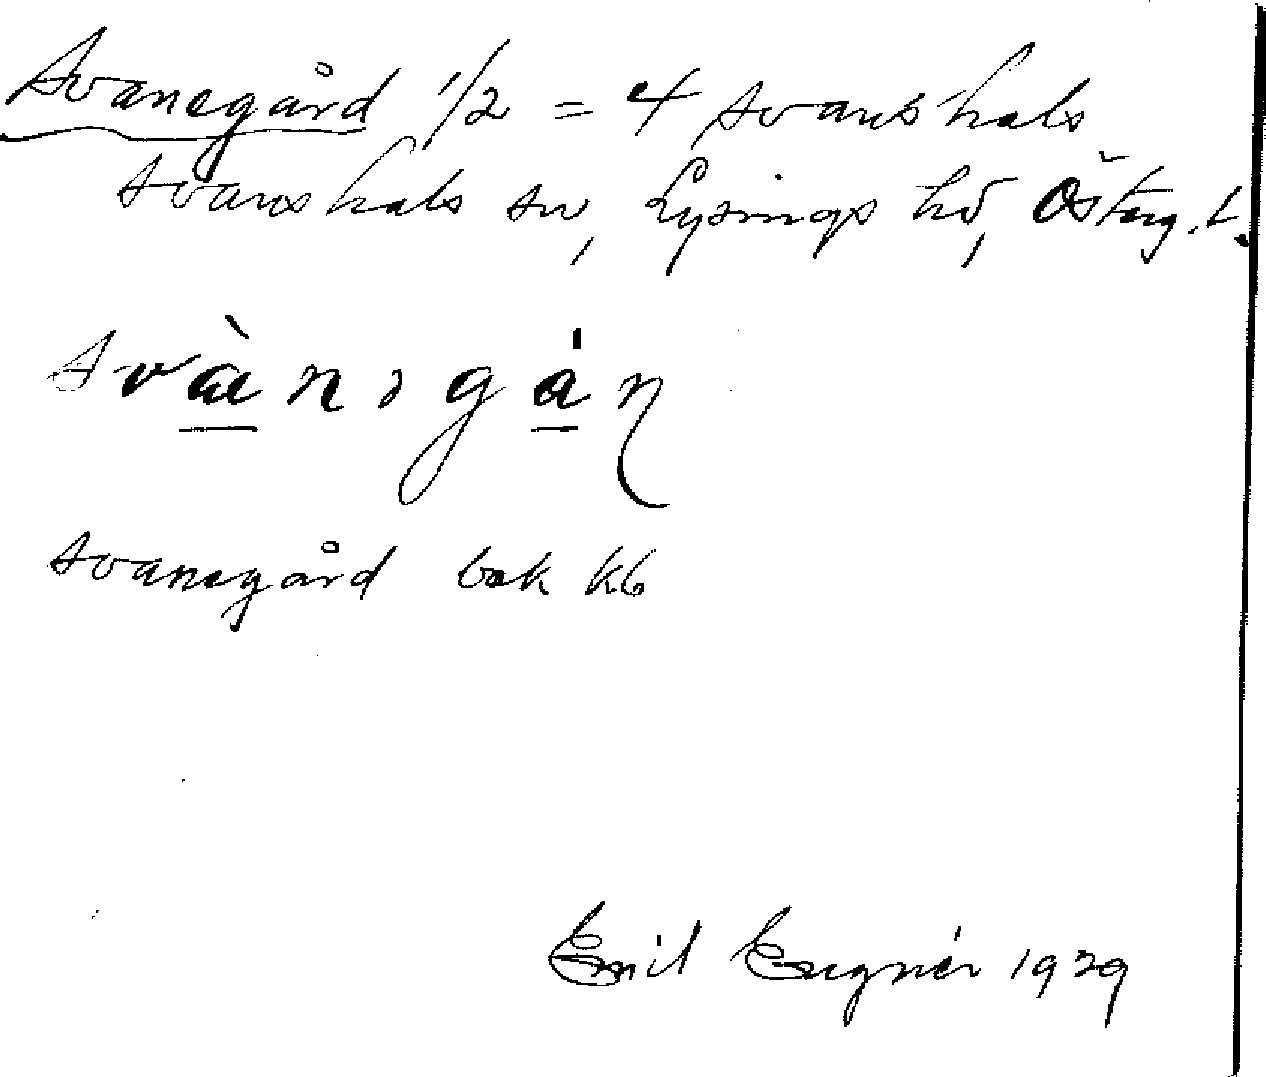 Svanegård 1/2 = 4 Svanshals
Svanshals sn, Lysings hd, Östergtl.
svὰnəgάɳ
Svanegård bok kb
Emil Eugnér 1929